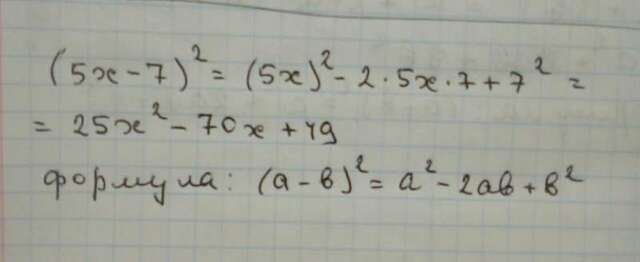 (5x - 7)² = (5x)² - 2 · 5x · 7 + 7² =
= 25x² - 70x + 49
формула: (a - b)² = a² - 2ab + b²